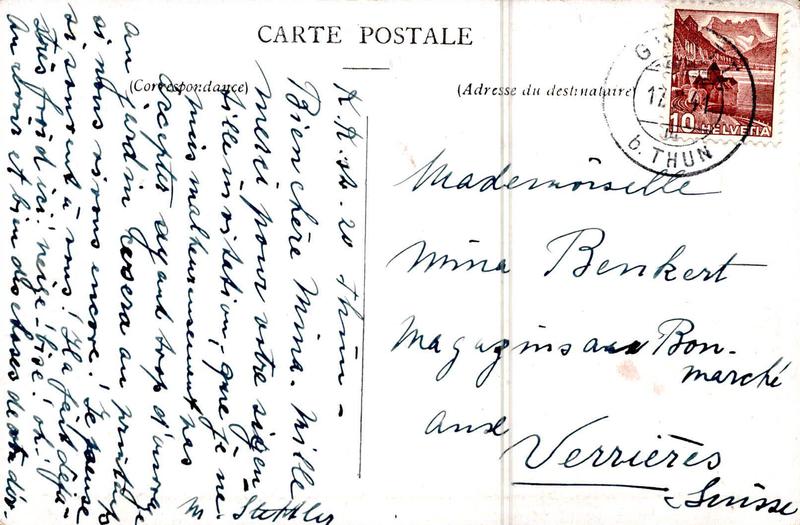 CARTE POSTALE
(Correspondance)
(Adresse du destinataire)
17. 41
b. THUN
10 HELVETIA
Mademoiselle
Mina Benkert
Magazins aux Bon-
marché
aux
Verrières
Suisse
20 Thun -
Bien chère Mina. Mille
merci pour votre si gen-
tille invitation, que je ne
puis malheureusement pas
accepter ayant trop d'ouvrage
au jardin. Ce sera au printemps
si nous vivons encore! Je pense
si souvent à vous! Il a fait déjà
très froid ici, neige! bise! oh!
Au revoir et bien des choses de votre
M. Stettler